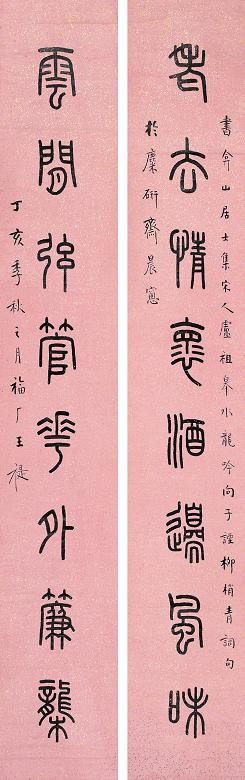 老去情懷酒邊風味
書弇山居士集宋人盧祖皋水龍吟向子諲柳梢青詞句
於麋研齋晨窗
雲閒弦管花外簾櫳
丁亥季秋之月福厂王禔